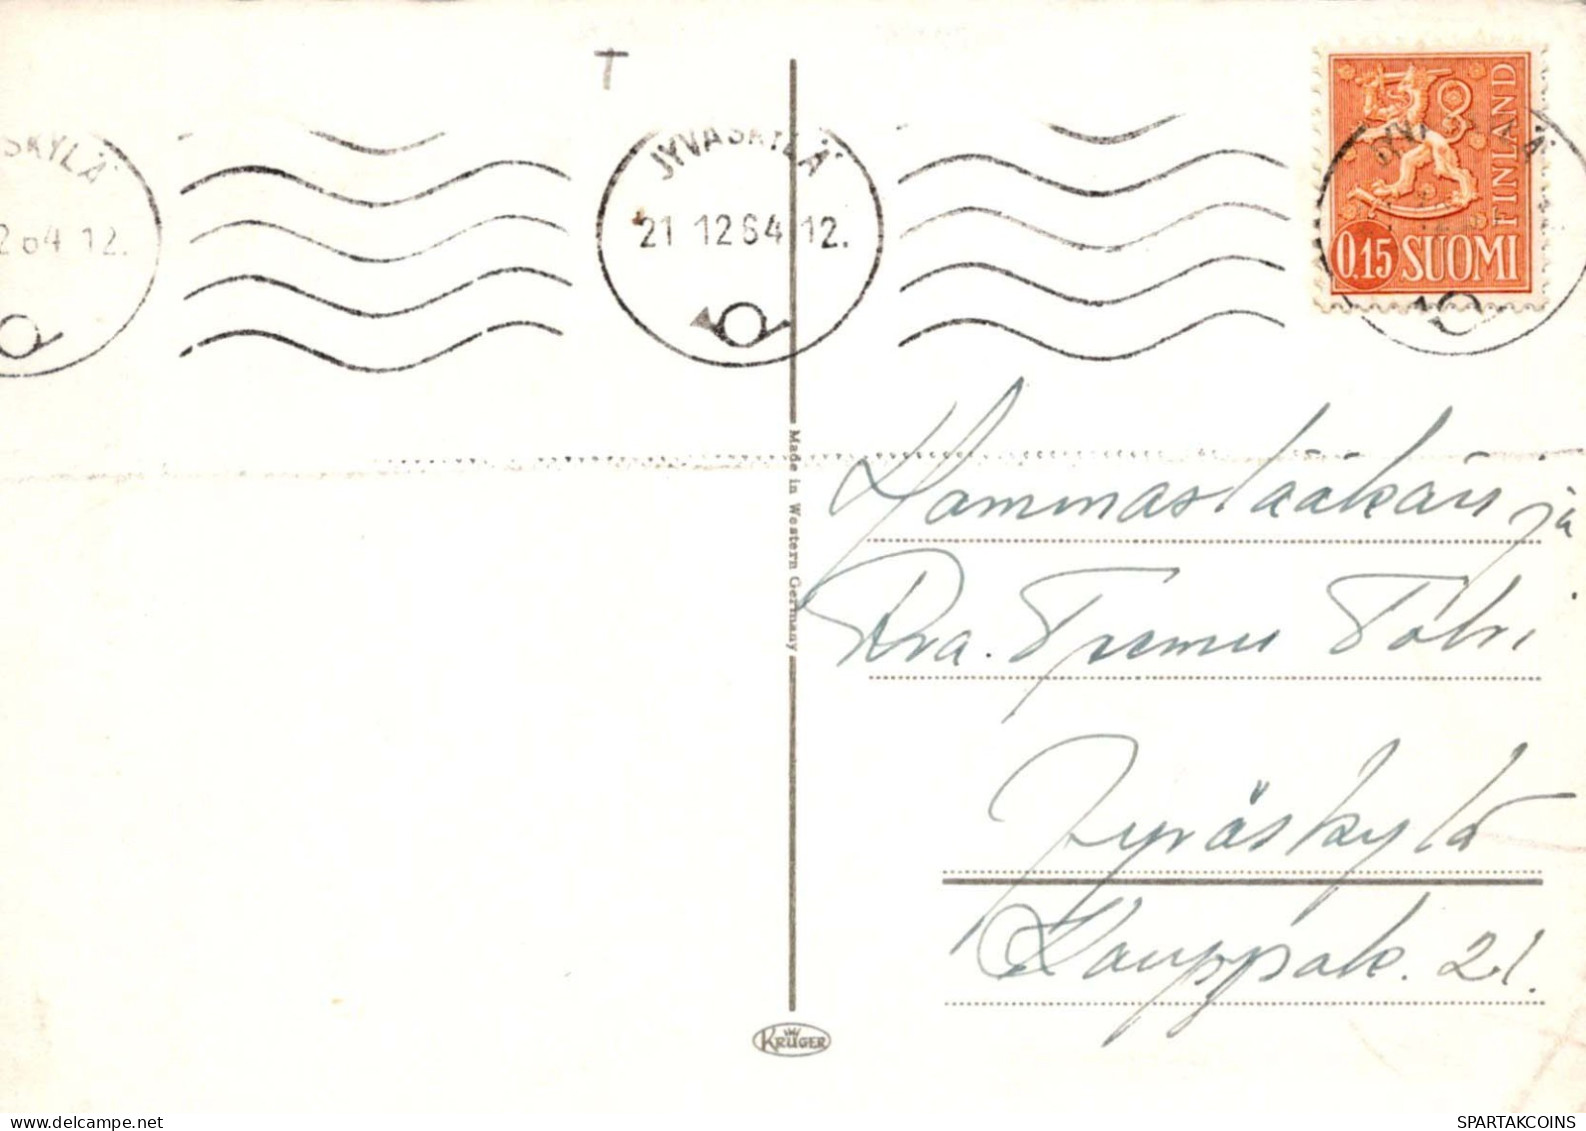 T
SKYLÄ
2 64 12.
JYVÄSKYLÄ
21 12 64 12.
FINLAND
0,15 SUOMI
Made in Western Germany
Hammaslääkäri ja
Rva.
Jyväskylä
Kauppak. 21.
KRÜGER
SPARTAKCOINS